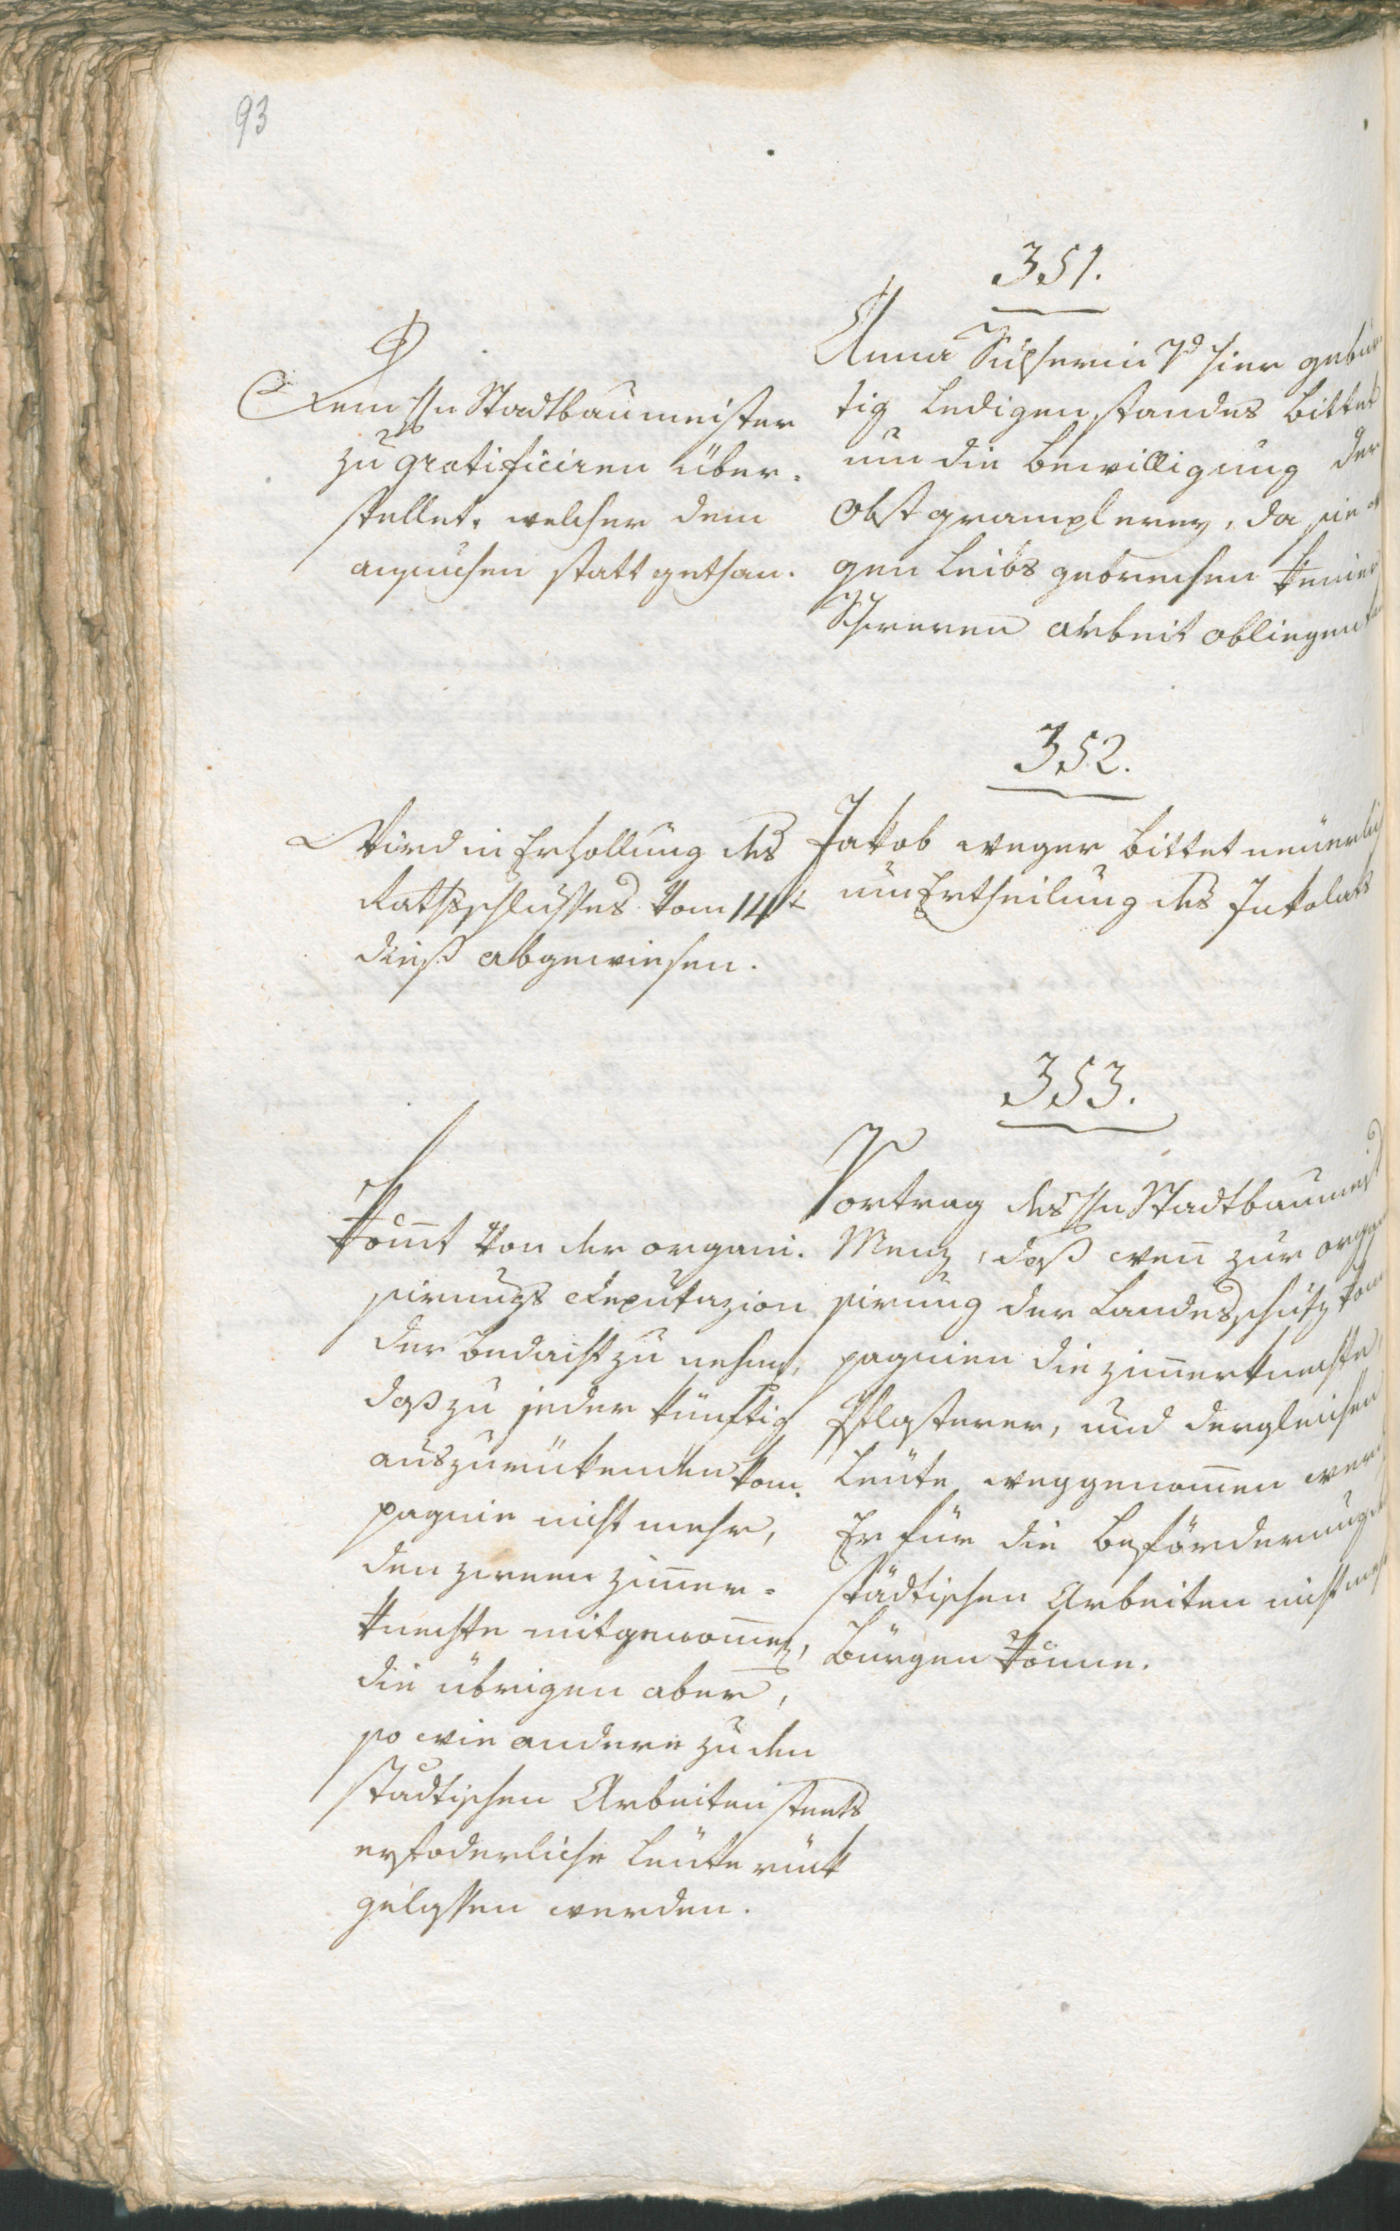 93
351.
Anna Süsserin Vo hier gebür
tig ledigen standes bittet
um die bewilligung der
Obst gramplerey, da sie
gen leibs gebrechen keiner
Schweren arbeit obliegen
Dem Hn Stadtbaumeister
zu gratificiren über-
stellet, welcher dem
ansuchen statt gethan.
352.
Jakob weger bittet neüerlich
um Ertheilung des Inkolats
Wird in Erhollung des
Rathsschlusses vom 14t
dieß abgewiesen.
353.
Vortrag des Hn Stadtbaumeist
Menz, daß weñ zur orga
sirung der Landesschutz kom
pagnien die zim̄erknechte
Pflasterer, und dergleichen
Leüte weggenom̄en wer
Er für die beförderung
städtischen Arbeiten nicht me
bürgen kön̄e.
Kom̄t von der organi-
sirungs Deputazion
der bedacht zu nehmen,
daß zu jeder künftig
auszurükenden kom-
pagnie nicht mehr,
den zween zim̄er-
knechte mitgenom̄en,
die übrigen aber,
so wie andere zu den
städtischen Arbeiten steets
erfoderliche Leüte rück
gelassen werden.